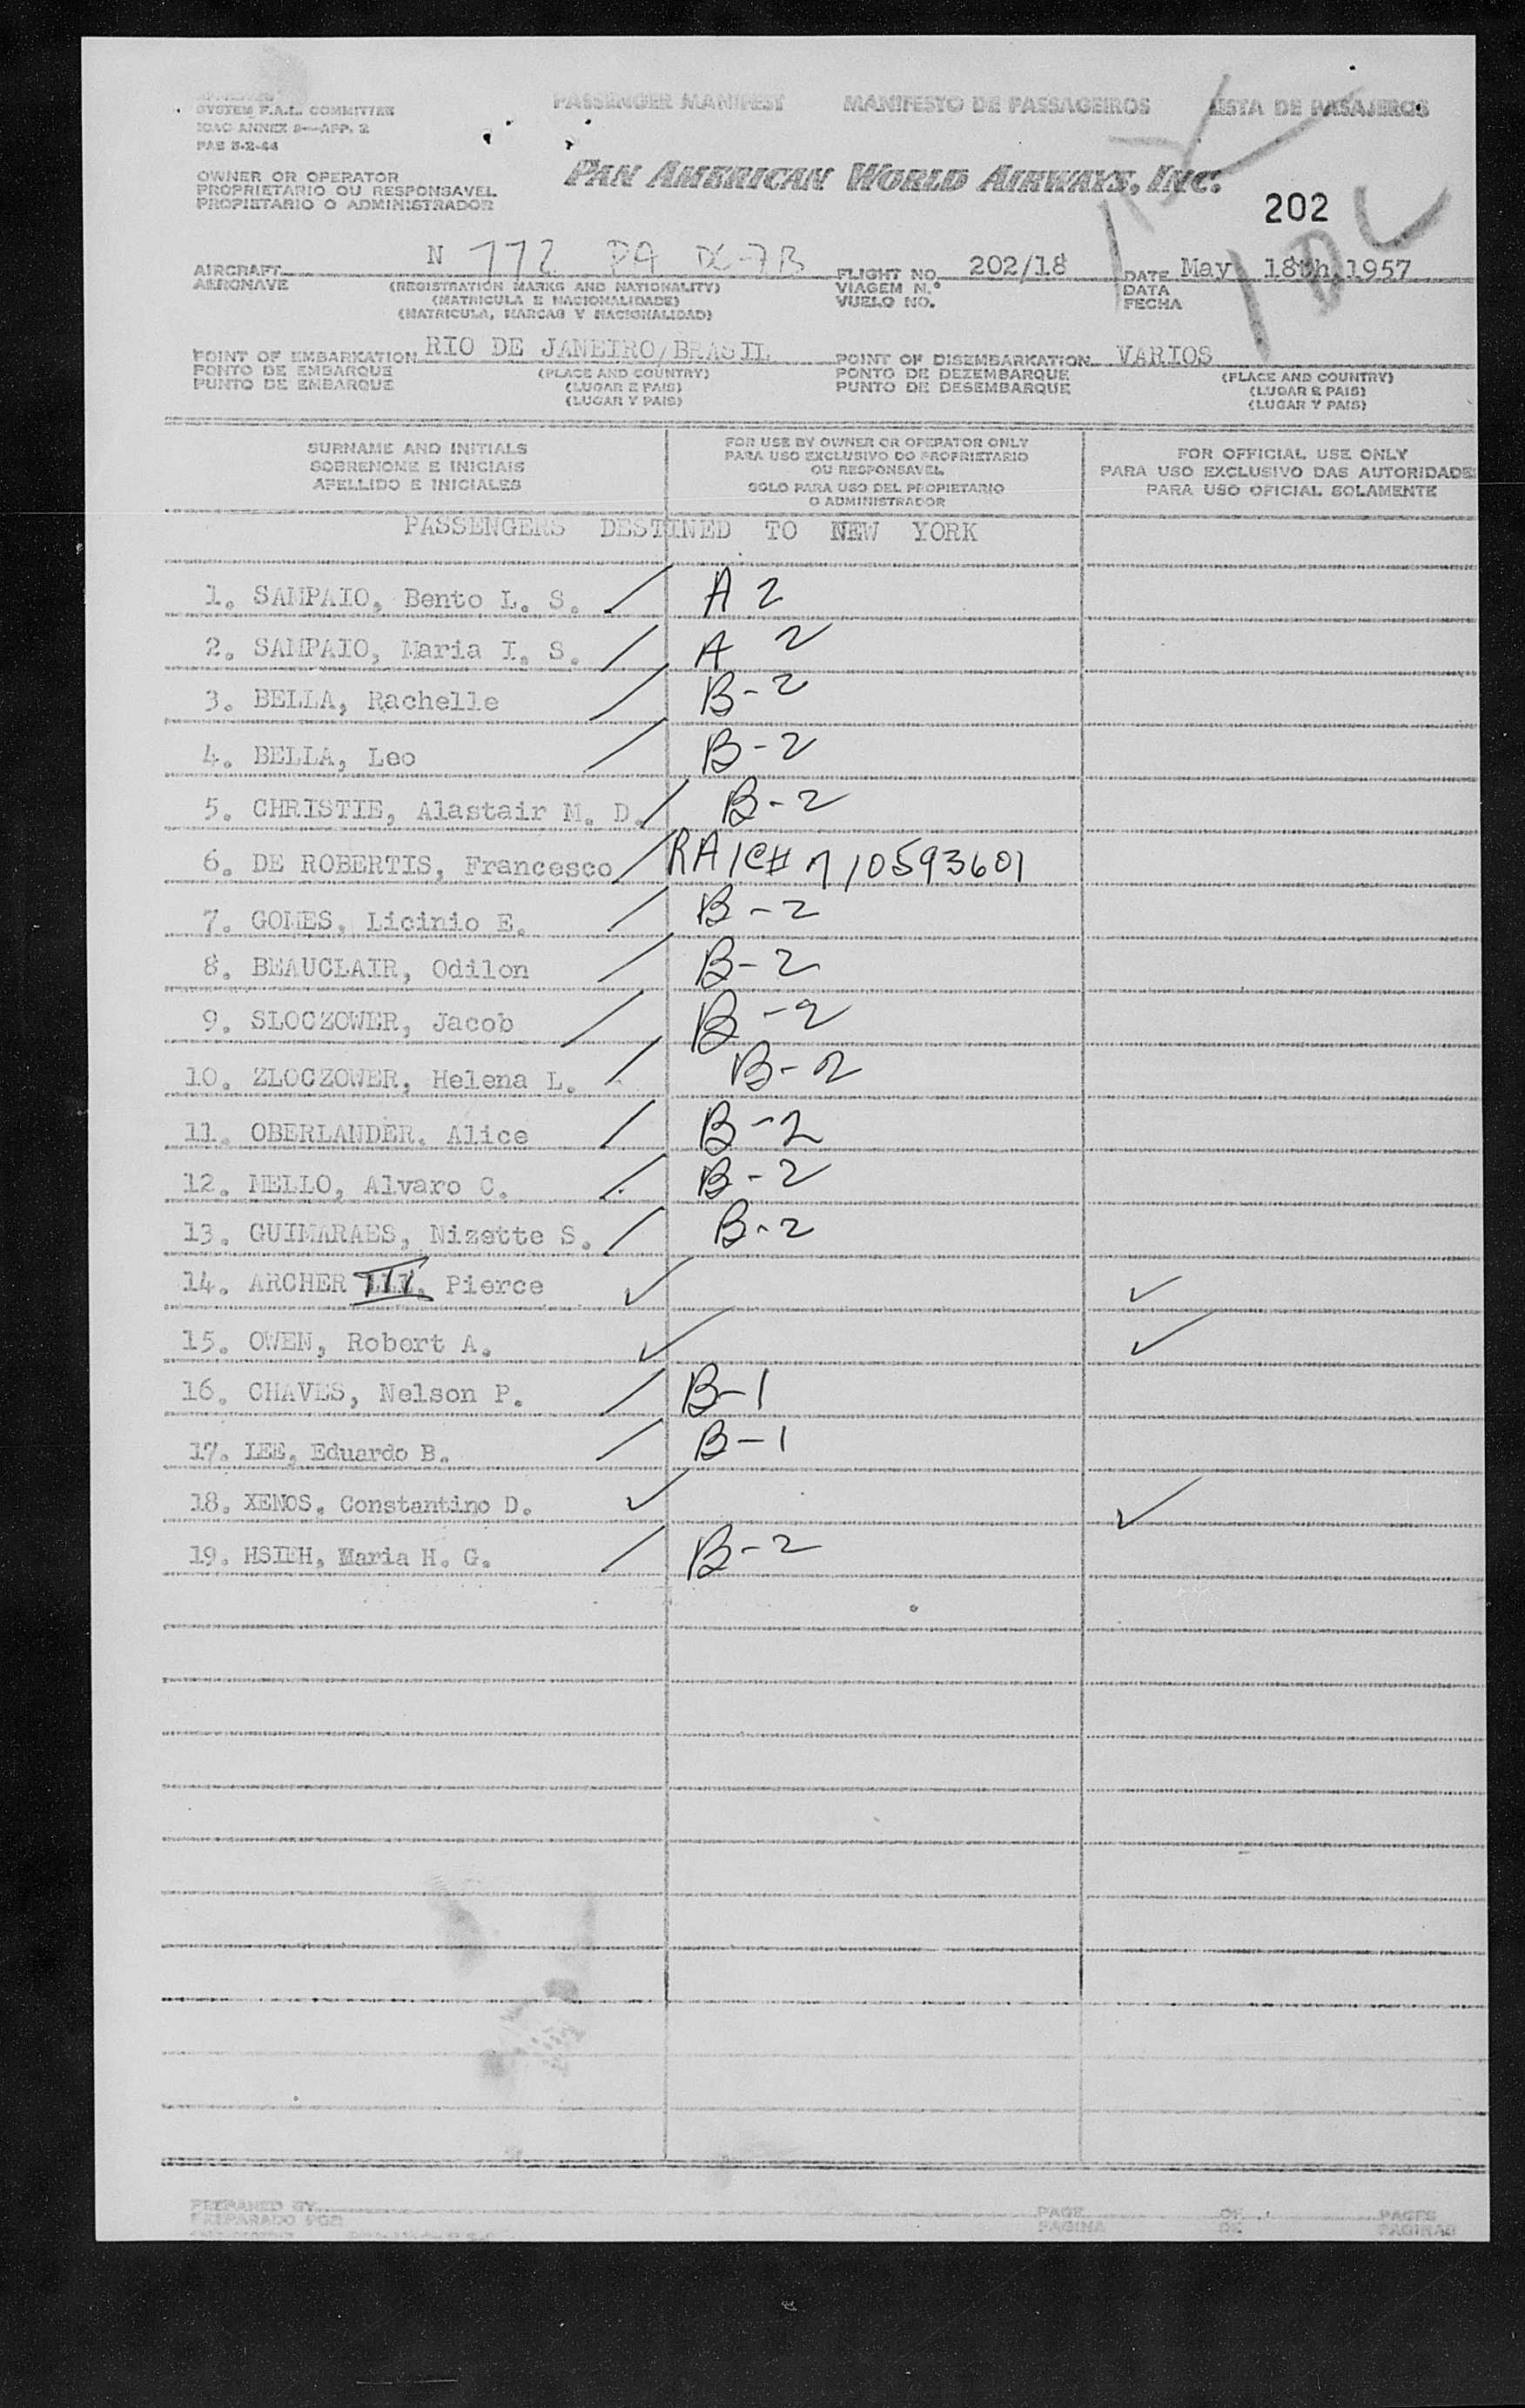 SYSTEM F.A.L. COMMITTEE
ICAO ANNEX 9—APP. 2
PAS 5-2-44
PASSENGER MANIFEST MANIFESTO DE PASSAGEIROS LISTA DE PASAJEROS
OWNER OR OPERATOR
PROPRIETARIO OU RESPONSAVEL
PROPIETARIO O ADMINISTRADOR
PAN AMERICAN WORLD AIRWAYS, INC.
202
AIRCRAFT N 772 PA DC-7B FLIGHT NO. 202/18 DATE May 18th, 1957
AERONAVE (REGISTRATION MARKS AND NATIONALITY) VIAGEM N.º DATA
(MATRICULA E NACIONALIDADE) VUELO NO. FECHA
(MATRICULA, MARCAS Y NACIONALIDAD)
POINT OF EMBARKATION RIO DE JANEIRO/BRASIL POINT OF DISEMBARKATION VARIOS
PONTO DE EMBARQUE (PLACE AND COUNTRY) PONTO DE DEZEMBARQUE (PLACE AND COUNTRY)
PUNTO DE EMBARQUE (LUGAR E PAIS) PUNTO DE DESEMBARQUE (LUGAR E PAIS)
(LUGAR Y PAIS) (LUGAR Y PAIS)
SURNAME AND INITIALS
SOBRENOME E INICIAIS
APELLIDO E INICIALES
FOR USE BY OWNER OR OPERATOR ONLY
PARA USO EXCLUSIVO DO PROPRIETARIO
OU RESPONSAVEL
SOLO PARA USO DEL PROPIETARIO
O ADMINISTRADOR
FOR OFFICIAL USE ONLY
PARA USO EXCLUSIVO DAS AUTORIDADE
PARA USO OFICIAL SOLAMENTE
PASSENGERS DESTINED TO NEW YORK
1. SAMPAIO, Bento L. S. A 2
2. SAMPAIO, Maria I. S. A 2
3. BELLA, Rachelle B-2
4. BELLA, Leo B-2
5. CHRISTIE, Alastair M. D. B-2
6. DE ROBERTIS, Francesco RA/C# 710593601
7. GOMES, Licinio E. B-2
8. BEAUCLAIR, Odilon B-2
9. SLOCZOWER, Jacob B-2
10. ZLOCZOWER, Helena L. B-2
11. OBERLANDER. Alice B-2
12. MELLO, Alvaro C. B-2
13. GUIMARAES, Nizette S. B-2
14. ARCHER III, Pierce ✓ ✓
15. OWEN, Robert A. ✓ ✓
16. CHAVES, Nelson P. B-1
17. LEE, Eduardo B. B-1
18. XENOS, Constantino D. ✓ ✓
19. HSIEH, Maria H. G. B-2
PREPARED BY PAGE OF PAGES
PREPARADO POR PAGINA DE PAGINAS